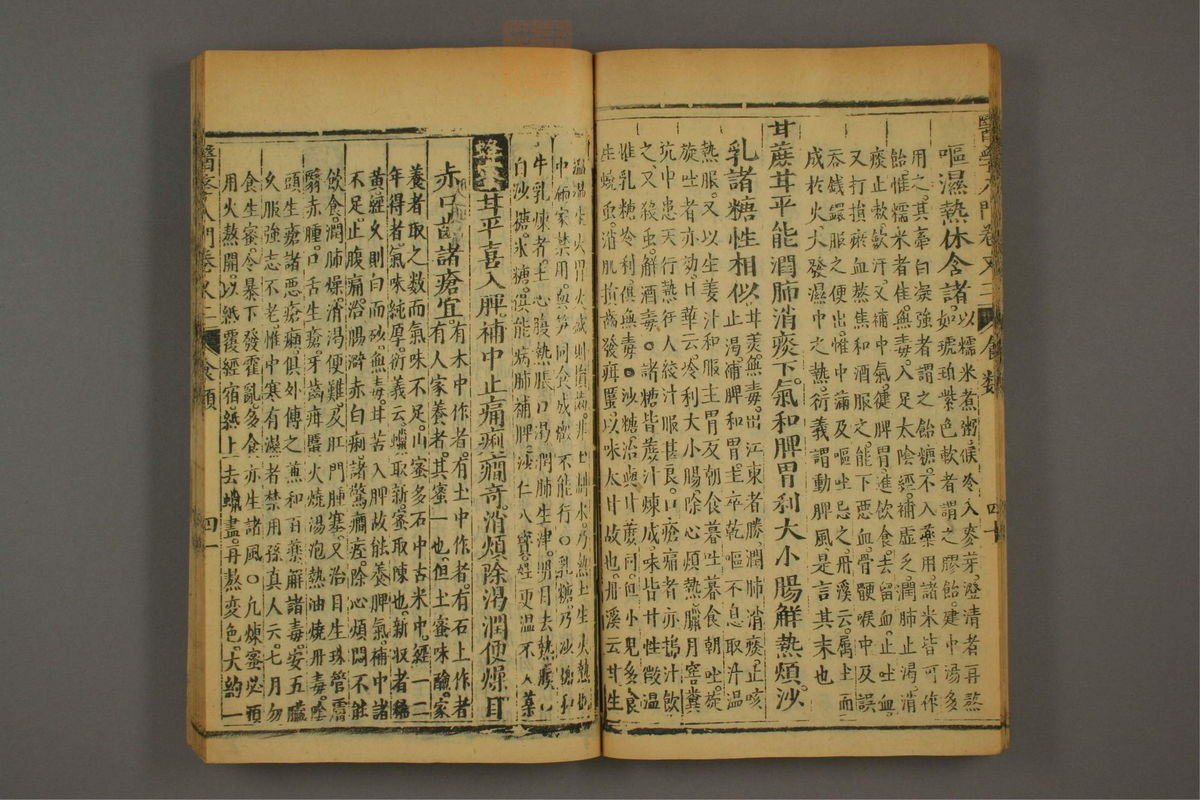 醫學入門卷又二 食類 四十
嘔濕熱休含諸以糯米煮粥候冷入麥芽澄清者再熬
如琥珀紫色軟者謂之膠飴建中湯多
用之其牽白凝強者謂之飴糖不入藥用諸米皆可作
飴惟糯米者佳無毒入足太陰經補虛乏潤肺止渴消
痰止嗽斂汗又補中氣健脾胃進飲食去留血止吐血
又打損瘀血熬焦和酒服之能下惡血骨鯁喉中及誤
吞錢鐶服之便出惟中滿及嘔吐忌之丹溪云屬土而
成於火大發濕中之熱衍義謂動脾風是言其末也
甘蔗甘平能潤肺消痰下氣和脾胃利大小腸解熱煩沙
乳諸糖性相似甘美無毒出江東者勝潤肺消痰止咳
止渴補脾和胃主卒乾嘔不息取汁溫
熱服又以生姜汁和服主胃反朝食暮吐暮食朝吐旋
旋吐者亦効日華云冷利大小腸除心煩熱臘月窖糞
坑中患天行熱狂人絞汁服甚良小瘡痛者亦搗汁飲
之又殺虫解酒毒諸糖皆蔗汁煉成味皆甘性微溫
惟乳糖冷利俱無毒沙糖治與甘蔗同但小兒多食
生蟯虫消肌損齒發疳䘌以味太甘故也丹溪云甘生
牛乳煉者主心腹熱脹口渴潤肺生津明目去熱膜
白沙糖氷糖俱能
甘平喜入脾補中止痛痢癇奇消煩除渴潤便燥目
赤口齒諸瘡宜有木中作者有土中作者有石上作者
有人家養者其蜜一也但土蜜味醶家
養者取之數而氣味不足山蜜多石中古木中經一二
年得者氣味純厚衍義云蠟取新蜜取陳也新收者稀
黃經久則白而砂無毒甘苦入脾故能養脾氣補中諸
不足止腹痛治腸澼赤白痢諸驚癇痙除心煩悶不能
飲食潤肺燥消渴便難及肛門腫塞又治目生珠管膚
翳赤腫口舌生瘡牙齒疳䘌火燒湯泡熱油燒丹毒陰
頭生瘡諸惡瘡癩俱外傅之兼和百藥解諸毒安五臟
久服強志不老惟中寒有濕者禁用孫真人云七月勿
食生蜜令暴下發霍亂多食亦生諸風凡煉蜜必須
用火熬開以紙覆經宿紙上去蠟盡再熬變色大約一
醫學入門卷又二 食類 四一